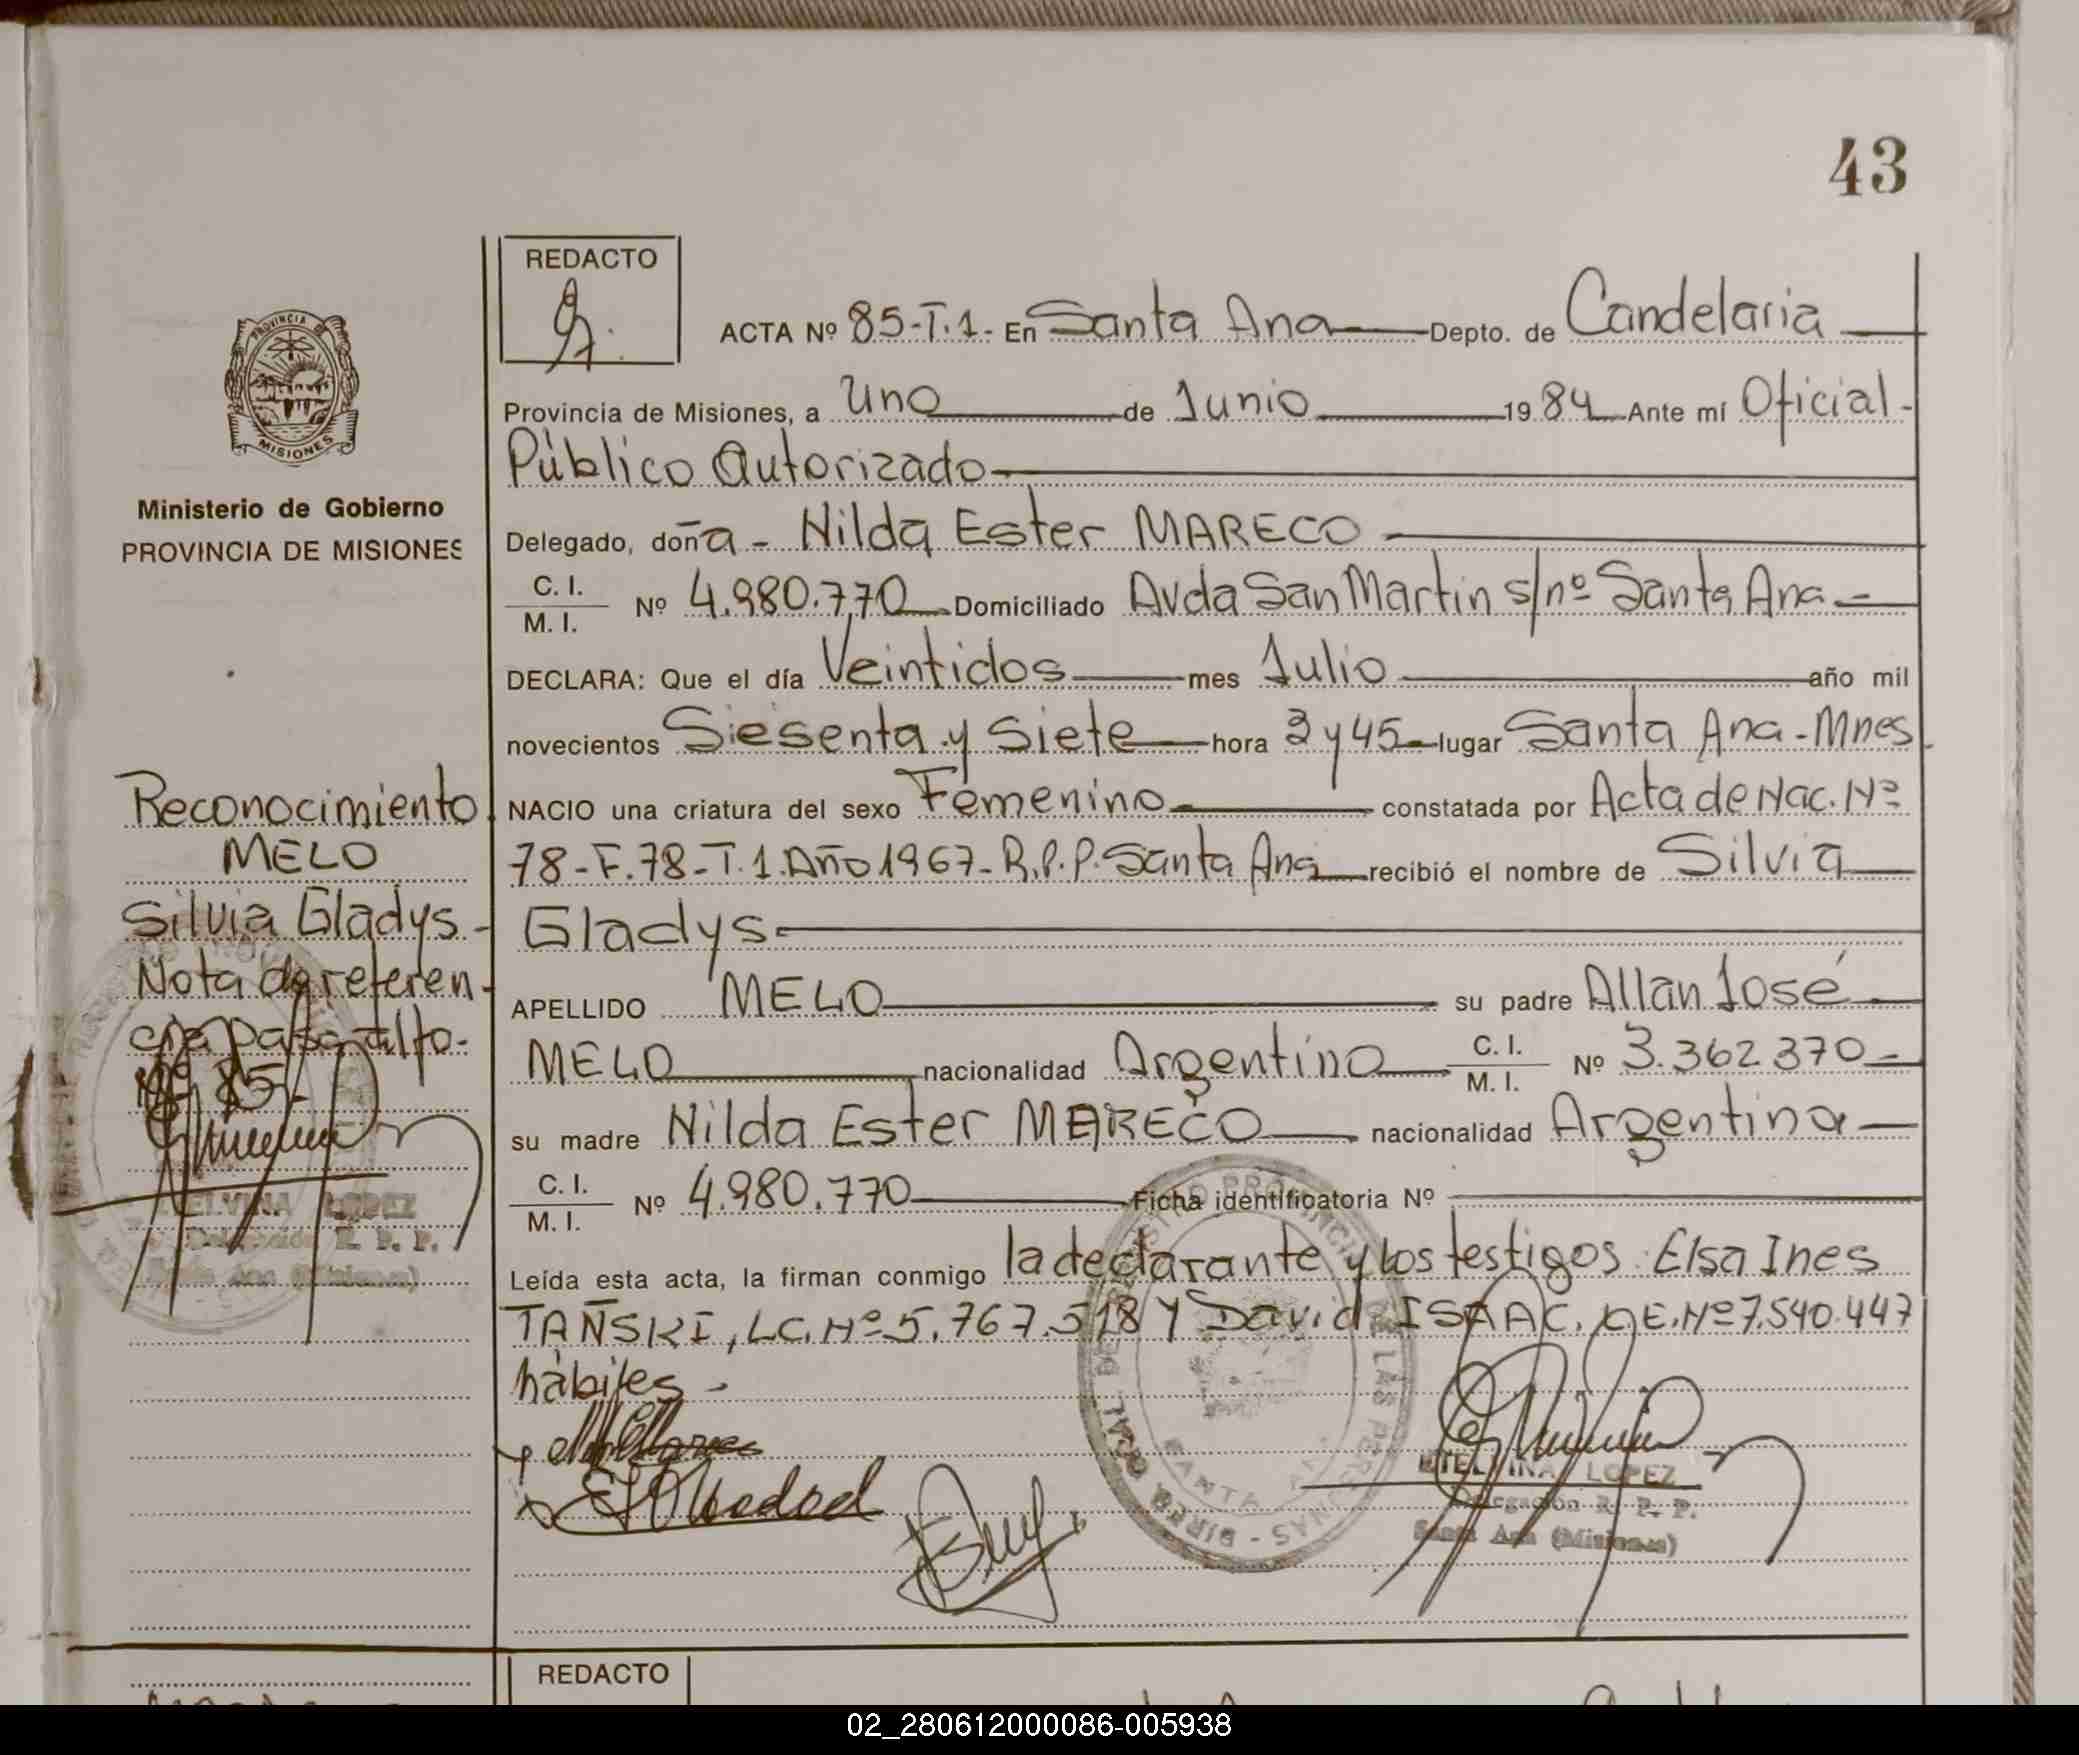 43
REDACTO
ACTA Nº 85-T.1- En Santa Ana Depto. de Candelaria
Provincia de Misiones, a Uno de Junio 1984 Ante mí Oficial-
Público Autorizado
Delegado, doña - Nilda Ester MARECO
C. I.
M. I. Nº 4.980.770 Domiciliado Avda San Martin s/nº Santa Ana-
DECLARA: Que el día Veintidos mes Julio año mil
novecientos Siesenta y Siete hora 3 y 45 lugar Santa Ana-Mnes
NACIO una criatura del sexo Femenino constatada por Acta de Nac. Nº
78-F.78-T.1.Año 1967-R.P.P. Santa Ana recibió el nombre de Silvia
Gladys
APELLIDO MELO su padre Allan José
MELO nacionalidad Argentino C. I. M. I. Nº 3.362.370-
su madre Nilda Ester MARECO nacionalidad Argentina
C. I.
M. I. Nº 4.980.770 Ficha identificatoria Nº
Leída esta acta, la firman conmigo la declarante y los testigos: Elsa Ines
TAÑSKI, LC. Nº 5.767.518 Y David ISAAC, Nº 7.540.447
hàbiles-
ETELVINA LOPEZ
Delegación R. P. P.
Santa Ana (Misiones)
PROVINCIA DE
MISIONES
Ministerio de Gobierno
PROVINCIA DE MISIONES
Reconocimiento
MELO
Silvia Gladys-
Nota de referen-
cia
85
ETELVINA LOPEZ
Delegación R. P. P.
Santa Ana (Misiones)
REDACTO
02_280612000086-005938